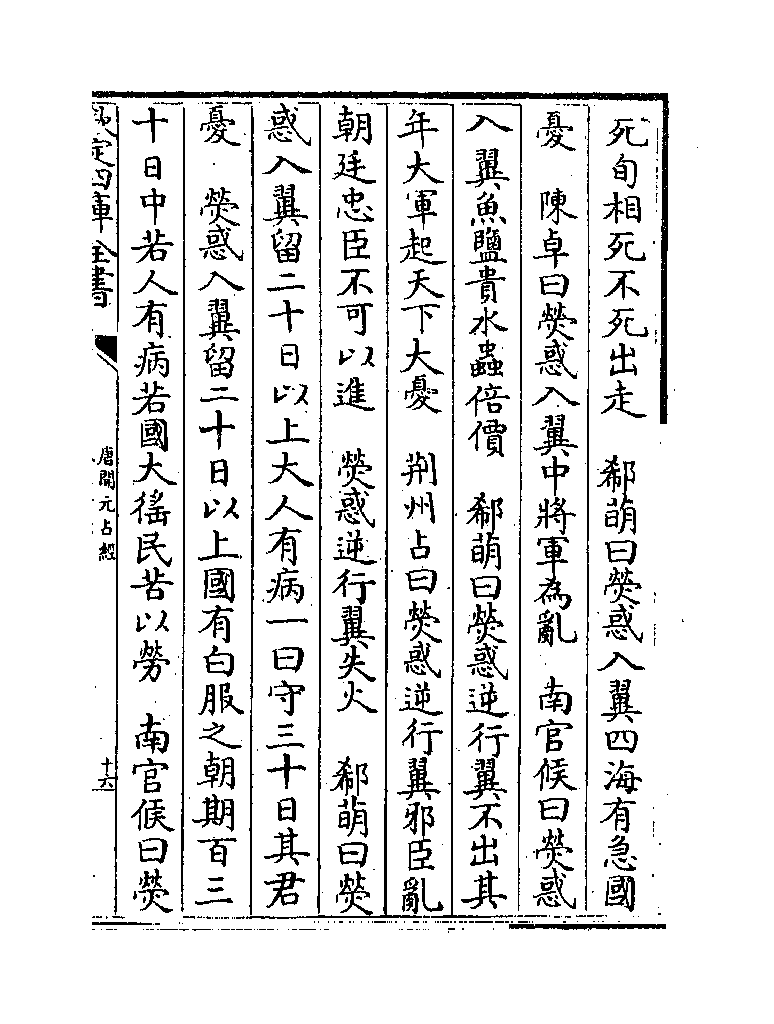 死旬相死不死出走　郗萌曰熒惑入翼四海有急國
憂　陳卓曰熒惑入翼中將軍為亂　南官候曰熒惑
入翼魚鹽貴水蟲倍價　郗萌曰熒惑逆行翼不出其
年大軍起天下大憂　荆州占曰熒惑逆行翼邪臣亂
朝廷忠臣不可以進　熒惑逆行翼失火　郗萌曰熒
惑入翼留二十日以上大人有病一曰守三十日其君
憂　熒惑入翼留二十日以上國有白服之朝期百三
十日中若人有病若國大徭民苦以勞　南官候曰熒
欽定四庫全書
唐開元占經
十六